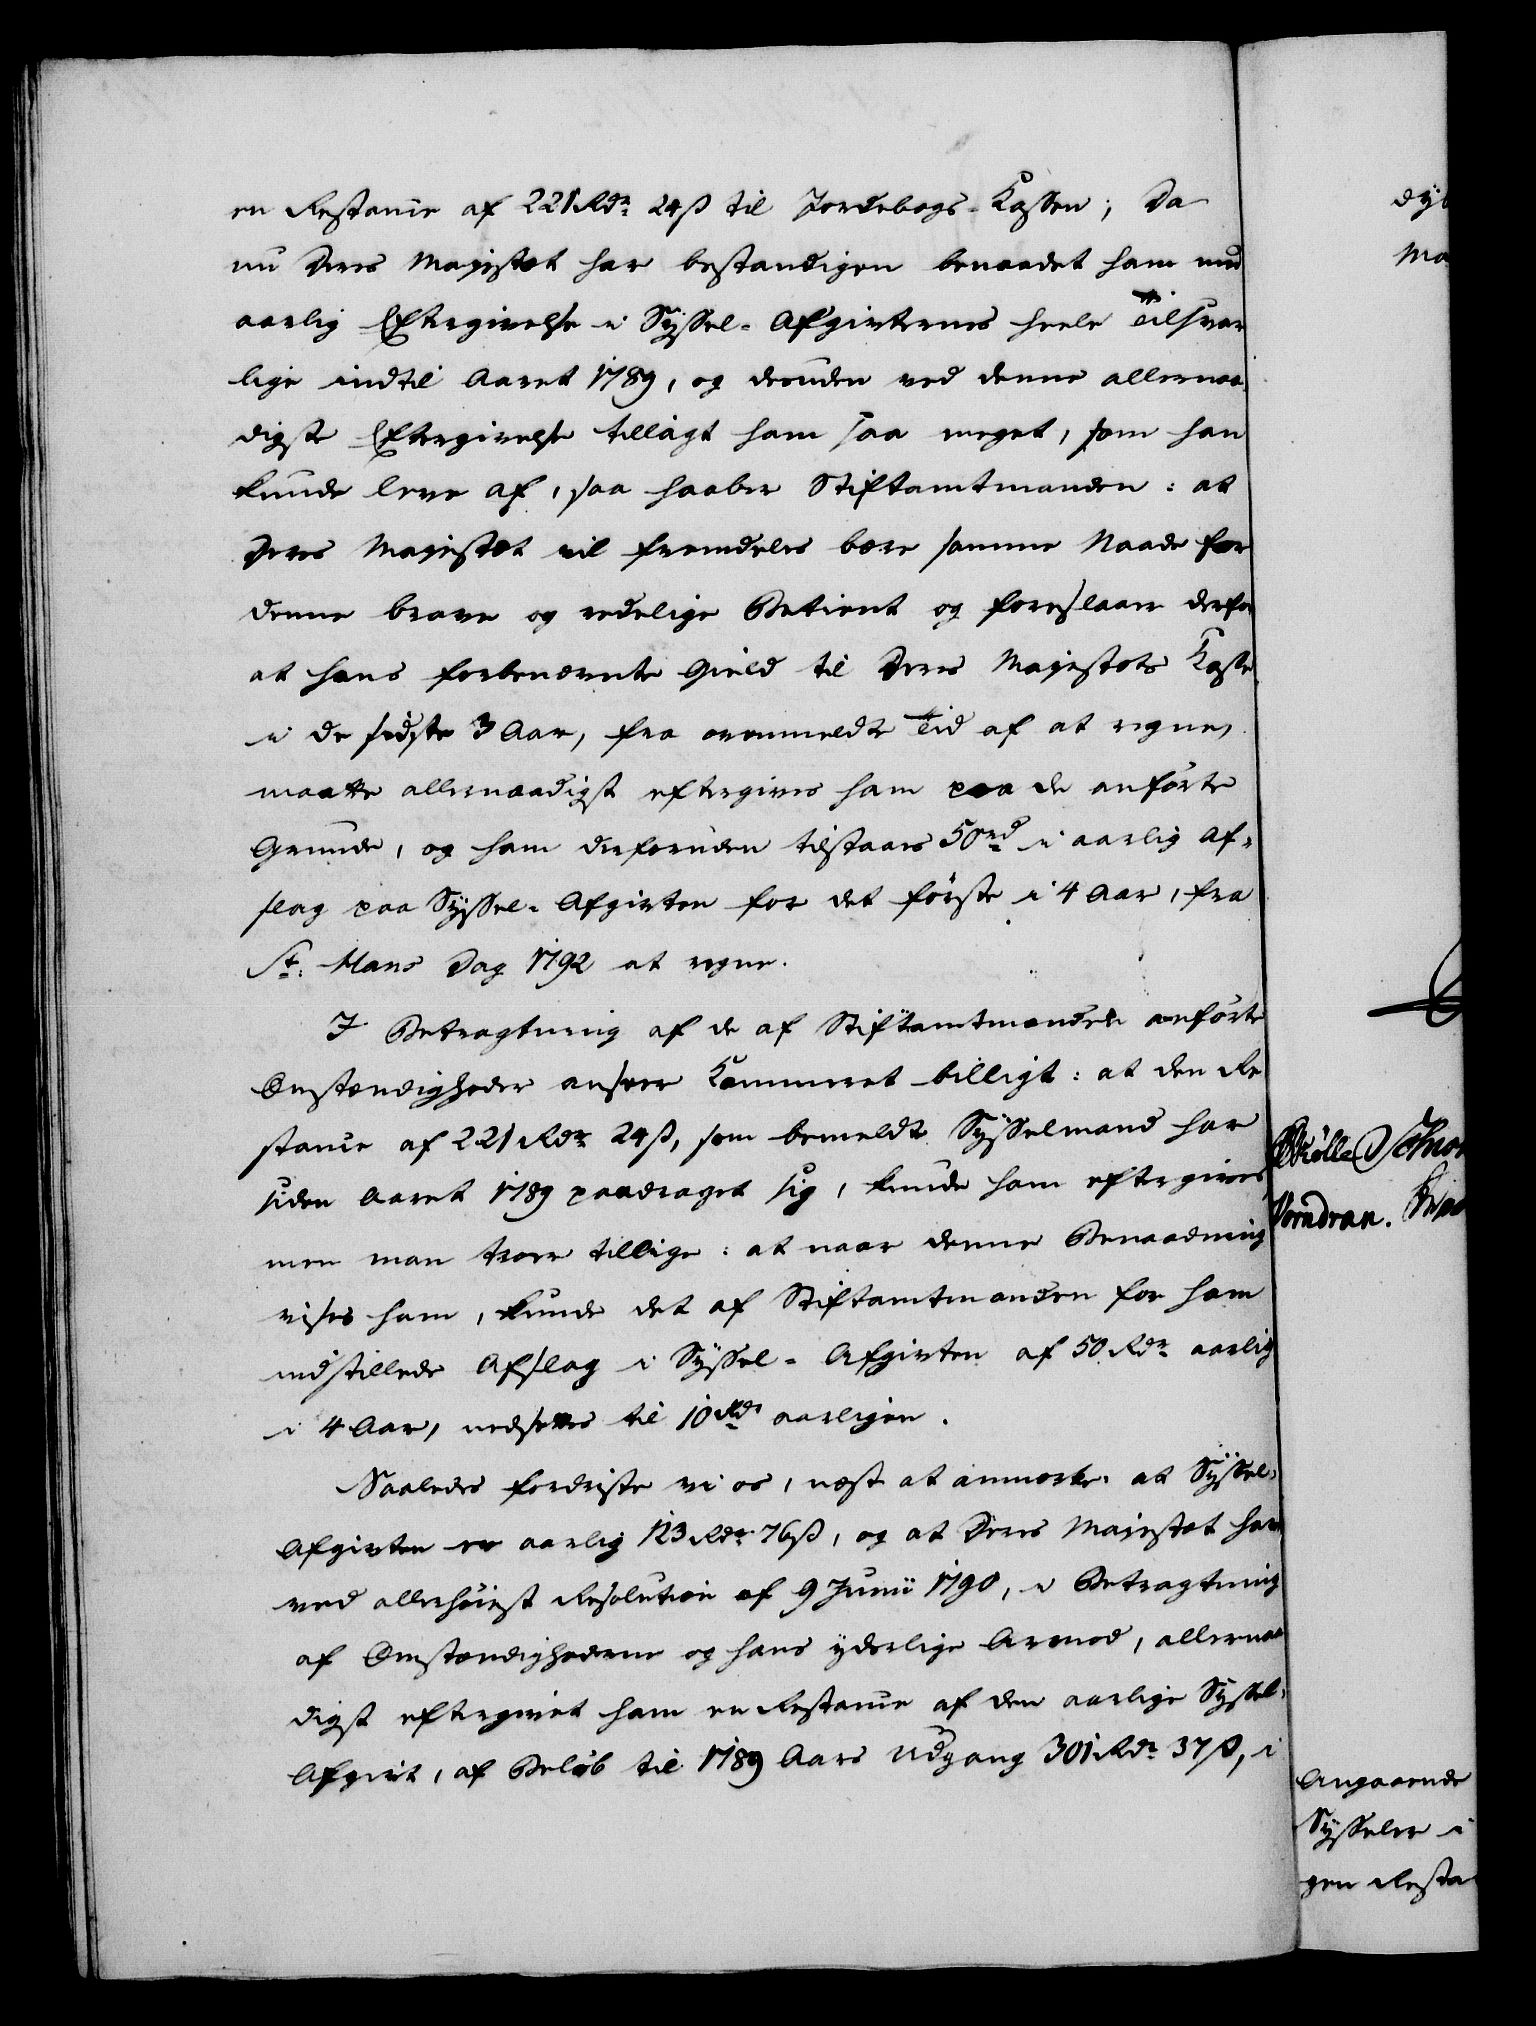 en Restance af 221 Rdr 24 ß til Jordebogs-Kassen; Da
nu Deres Majestæt har bestandigen benaadet ham med
aarlig Eftergivelse i Syssel-Afgivternes heele Tilsvar
lige indtil Aaret 1789, og desuden ved denne allernaa-
digste Eftergivelse tillagt ham saa meget, som han
kunde leve af, saa haaber Stiftamtmanden: at
Deres Majestæt vil fremdeles bære samme Naade for
denne brave og redelige Betient og foreslaaer derfor
at hans forbenævnte Gield til Deres Majestæts Kasse
i de sidste 3 Aar, fra ovenmeldte Tid af at regne,
maatte allernaadigst eftergives ham paa de anførte
Grunde, og ham desforuden tilstaaes 50 rd i aarlig Af-
slag paa Syssel-Afgivten for det første i 4 Aar, fra
St. Hans Dag 1792 at regne.
I Betragtning af de af Stiftamtmanden anførte
Omstændigheder anseer Kammeret billigt: at den Re
stance af 221 Rdr 24 ß, som bemeldte Sysselmand har
siden Aaret 1789 paadraget sig, kunde ham eftergives,
men man troer tillige: at naar denne Benaadning
vises ham, kunde det af Stiftamtmanden for ham
indstillede Afslag i Syssel-Afgivten af 50 Rdr aarlig
i 4 Aar, nedsættes til 10 Rdr aarligen.
Saaledes fordriste vi os, næst at anmærke: at Syssel-
Afgivten er aarlig 123 Rdr 76 ß, og at Deres Majestæt har
ved allerhøiest Resolution af 9 Junii 1790, i Betragtning
af Omstændighederne og hans yderlige Armod, allernaa
digst eftergivet ham en Restance af den aarlige Syssel-
Afgivt, af Beløb til 1789 Aars Udgang 301 Rdr 37 ß, i
Angaaende
Sysseler i
gen Resta